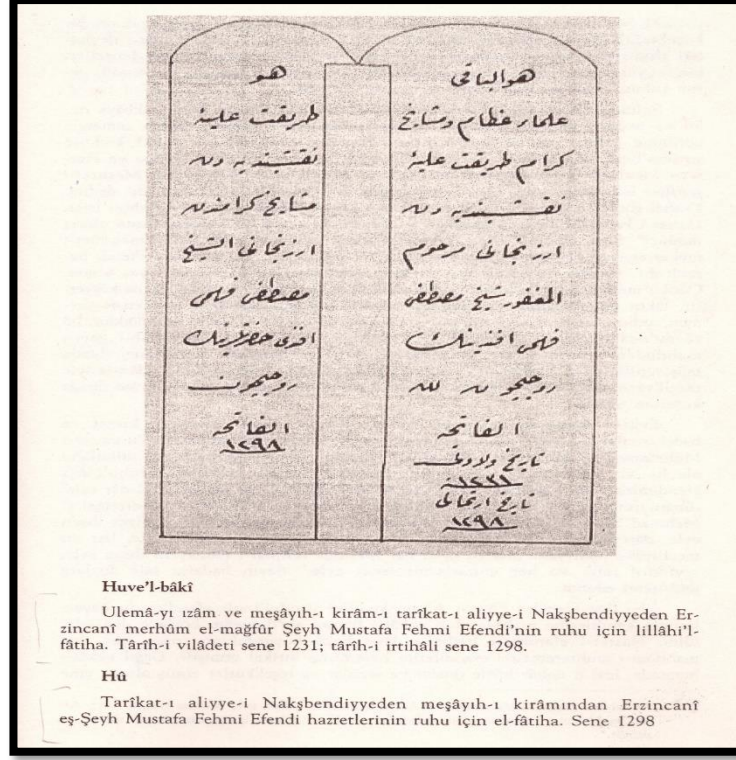 هو الباقی
علمار عظام ومشایخ
کرام طریقت علیۀ
نقشبندیه دن
ارزنجانی مرحوم
المغفور شیخ مصطفی
فهمی افندینك
روحیچون لله
الفاتحه
تاریخ ولادتی
١٢٣١
تاریخ ارتحالی
١٢٩٨
هو
طریقت علیۀ
نقشبندیه دن
مشایخ کرامندن
ارزنجانی الشیخ
مصطفی فهمی
افندی حضرتلرینك
روحیچون
الفاتحه
١٢٩٨
Huve'l-bâkî
Ulemâ-yı ızâm ve meşâyıh-ı kirâm-ı tarîkat-ı aliyye-i Nakşbendiyyeden Er-
zincanî merhûm el-mağfûr Şeyh Mustafa Fehmi Efendi'nin ruhu için lillâhi'l-
fâtiha. Târîh-i vilâdeti sene 1231; târîh-i irtihâli sene 1298.
Hû
Tarîkat-ı aliyye-i Nakşbendiyyeden meşâyıh-ı kirâmından Erzincanî
eş-Şeyh Mustafa Fehmi Efendi hazretlerinin ruhu için el-fâtiha. Sene 1298